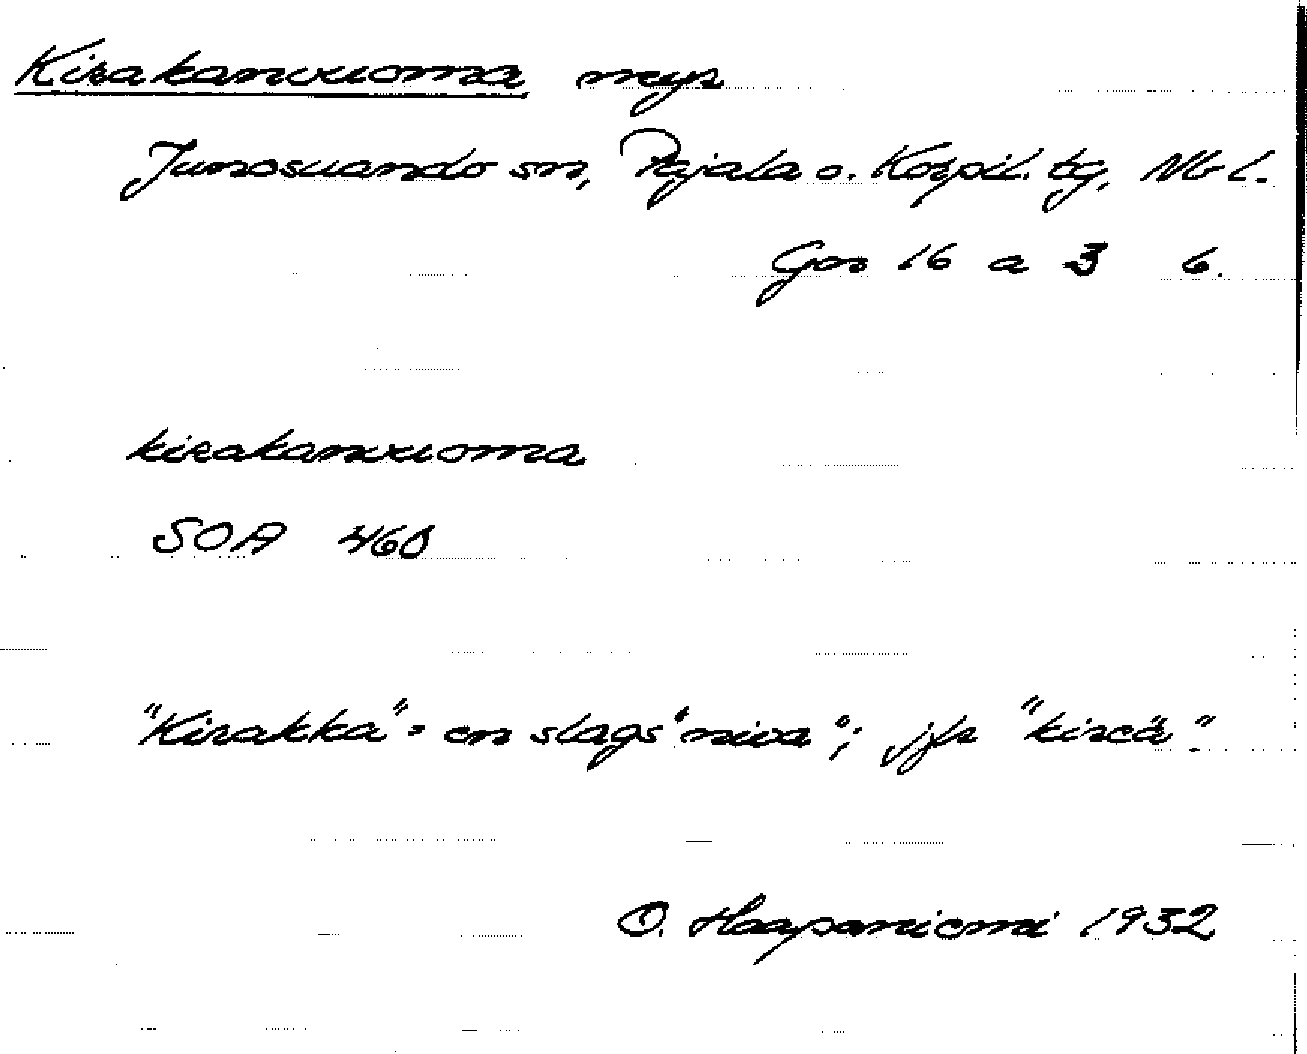 Kirakanvuoma myr
Junosuando sn, Pajala o. Korpil. tg, Nb l.
Gos 16 a 3 b.
kirakanvuoma
SOA 460
"Kirakka" = en slags "niva"; jfr "kireä"
O. Haapaniemi 1932